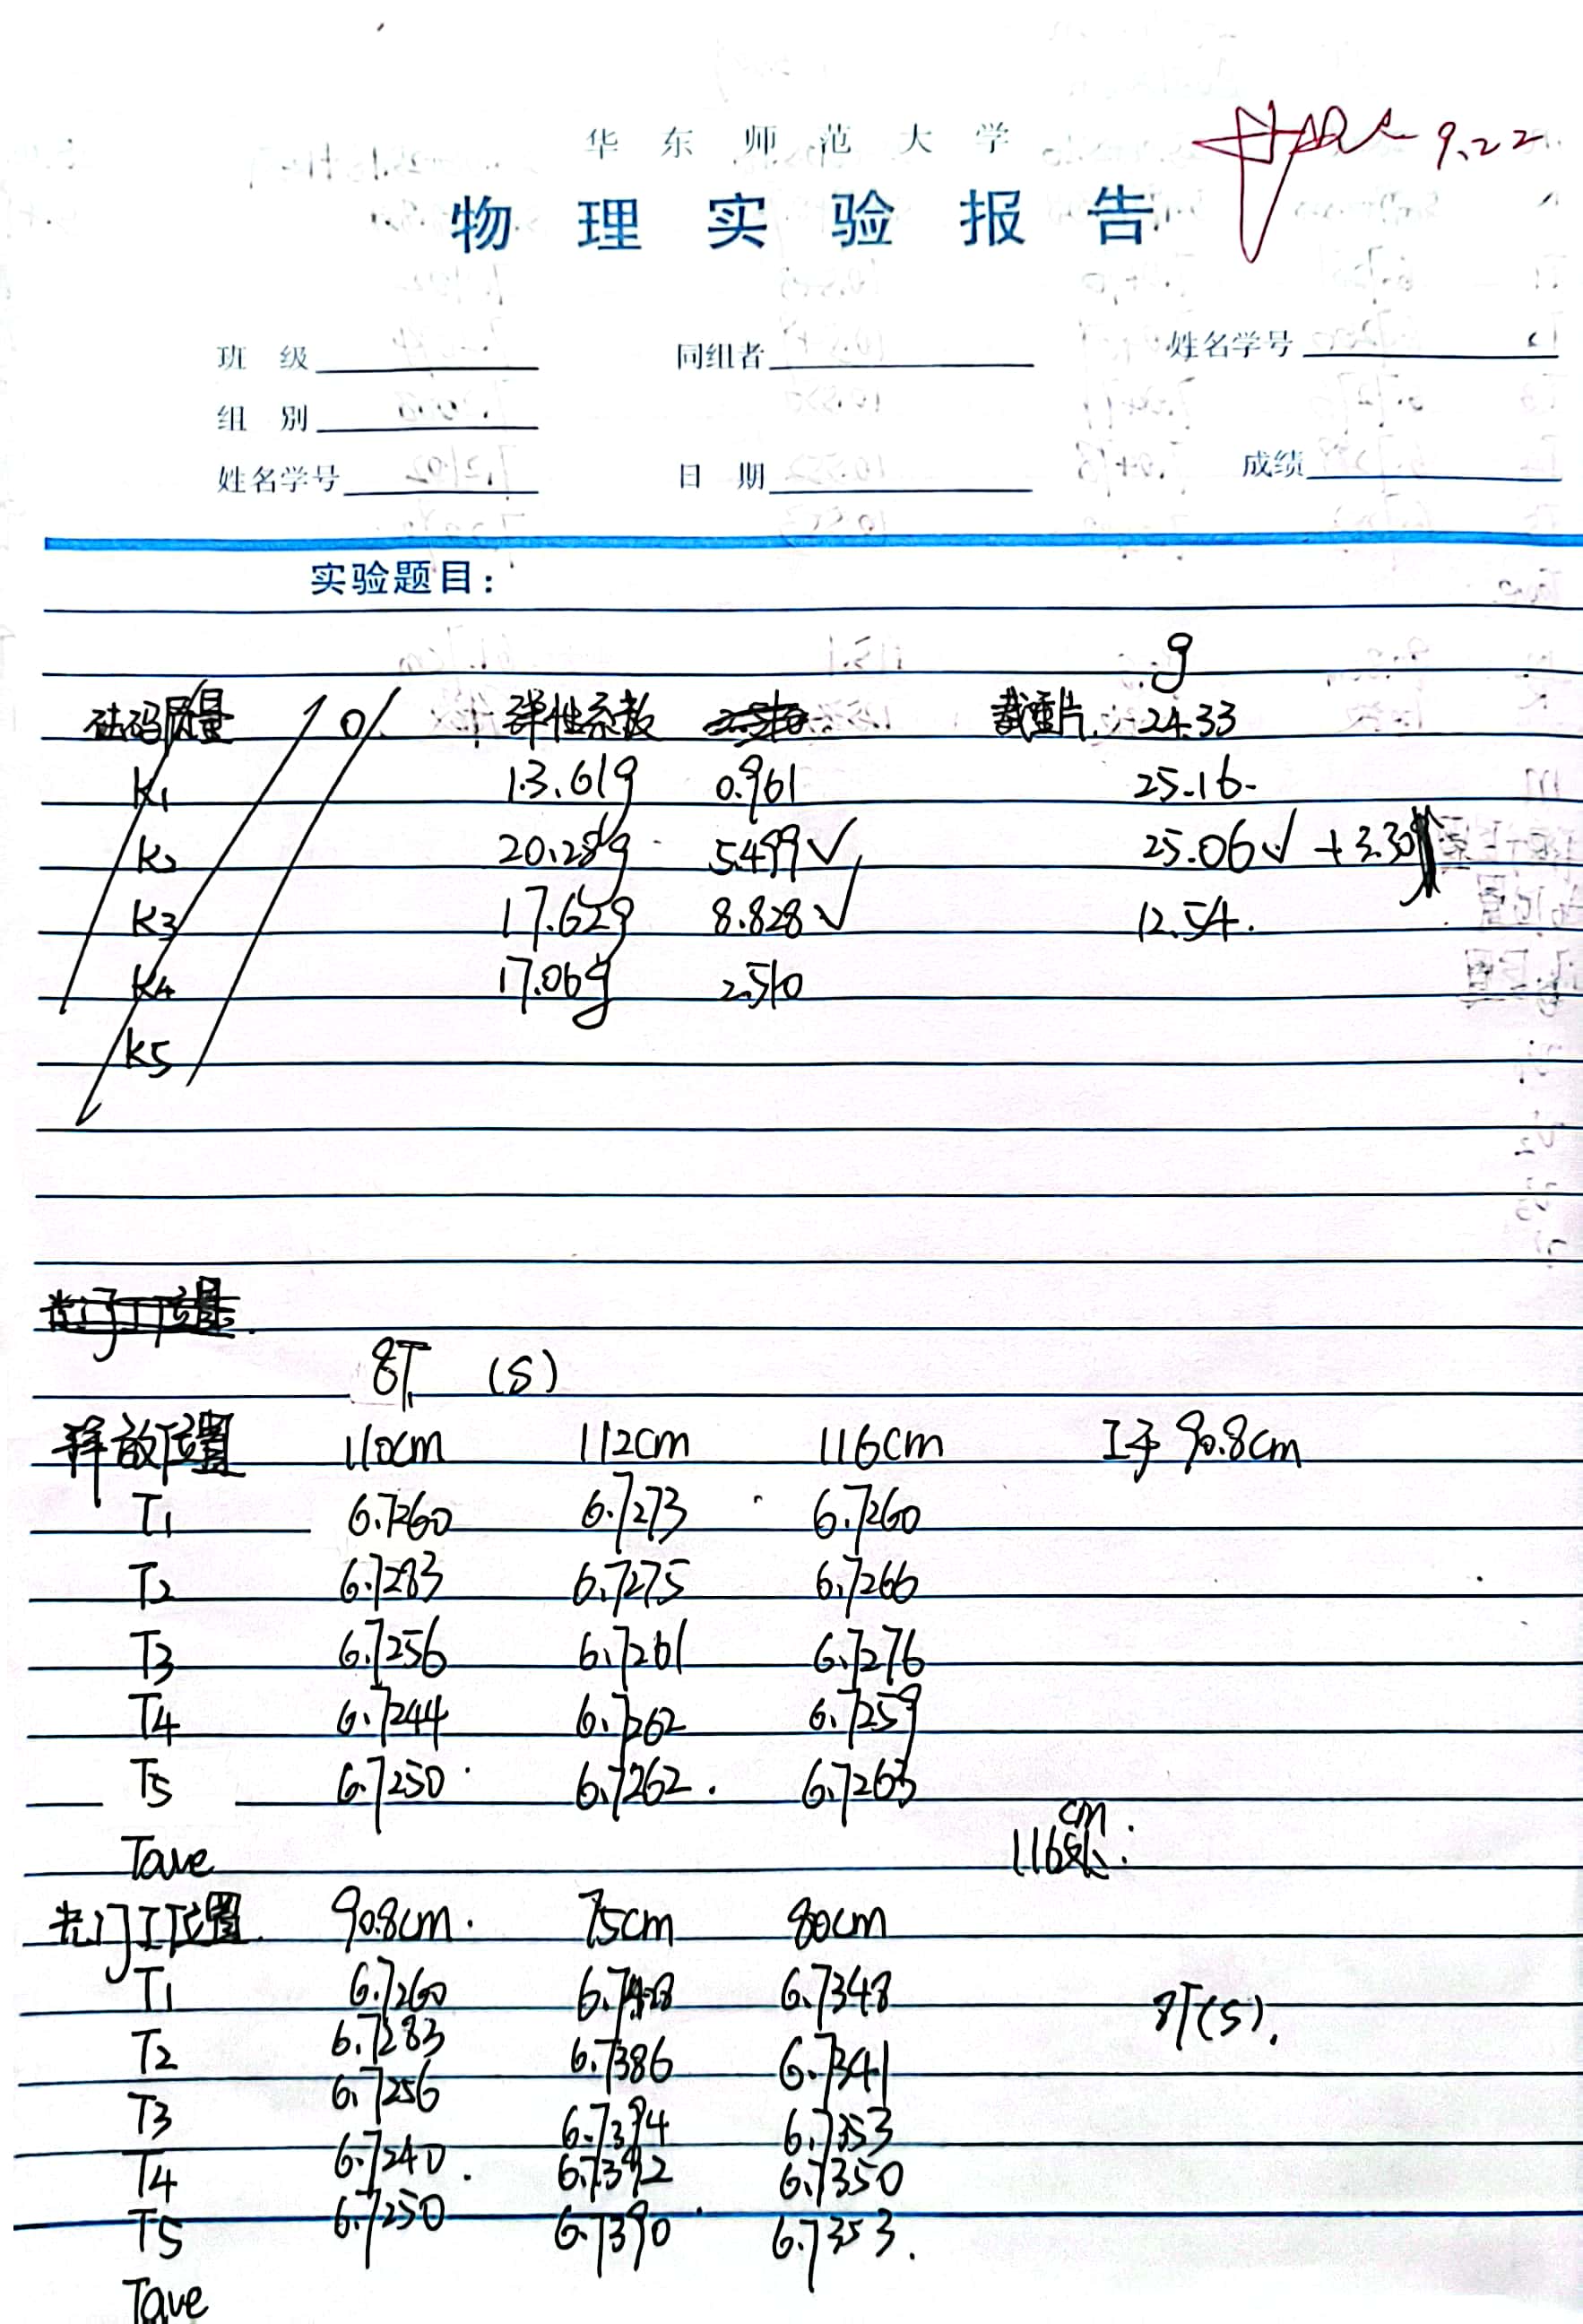 华东师范大学
9.22
物理实验报告
班 级 同组者 姓名学号
组 别
姓名学号 日 期 成绩
实验题目：
g
砝码质量 弹性系数 载重片 24.33
K1 13.61g 0.961 25.16
K2 20.28g 5.499√ 25.06√ +3.30
K3 17.62g 8.828√ 12.54
K4 17.06g 2.510
K5
8T (s)
释放位置 110cm 112cm 116cm I于90.8cm
T1 6.7260 6.7273 6.7260
T2 6.7283 6.7275 6.7266
T3 6.7256 6.7261 6.7276
T4 6.7244 6.7262 6.7259
T5 6.7250 6.7262 6.7263
cm
Tave 116处:
光门I位置 90.8cm 75cm 80cm
T1 6.7260 6.7348 8T(s).
T2 6.7283 6.7386 6.7341
T3 6.7256 6.7394 6.7353
T4 6.7240 6.7392 6.7350
T5 6.7250 6.7390 6.7353
Tave